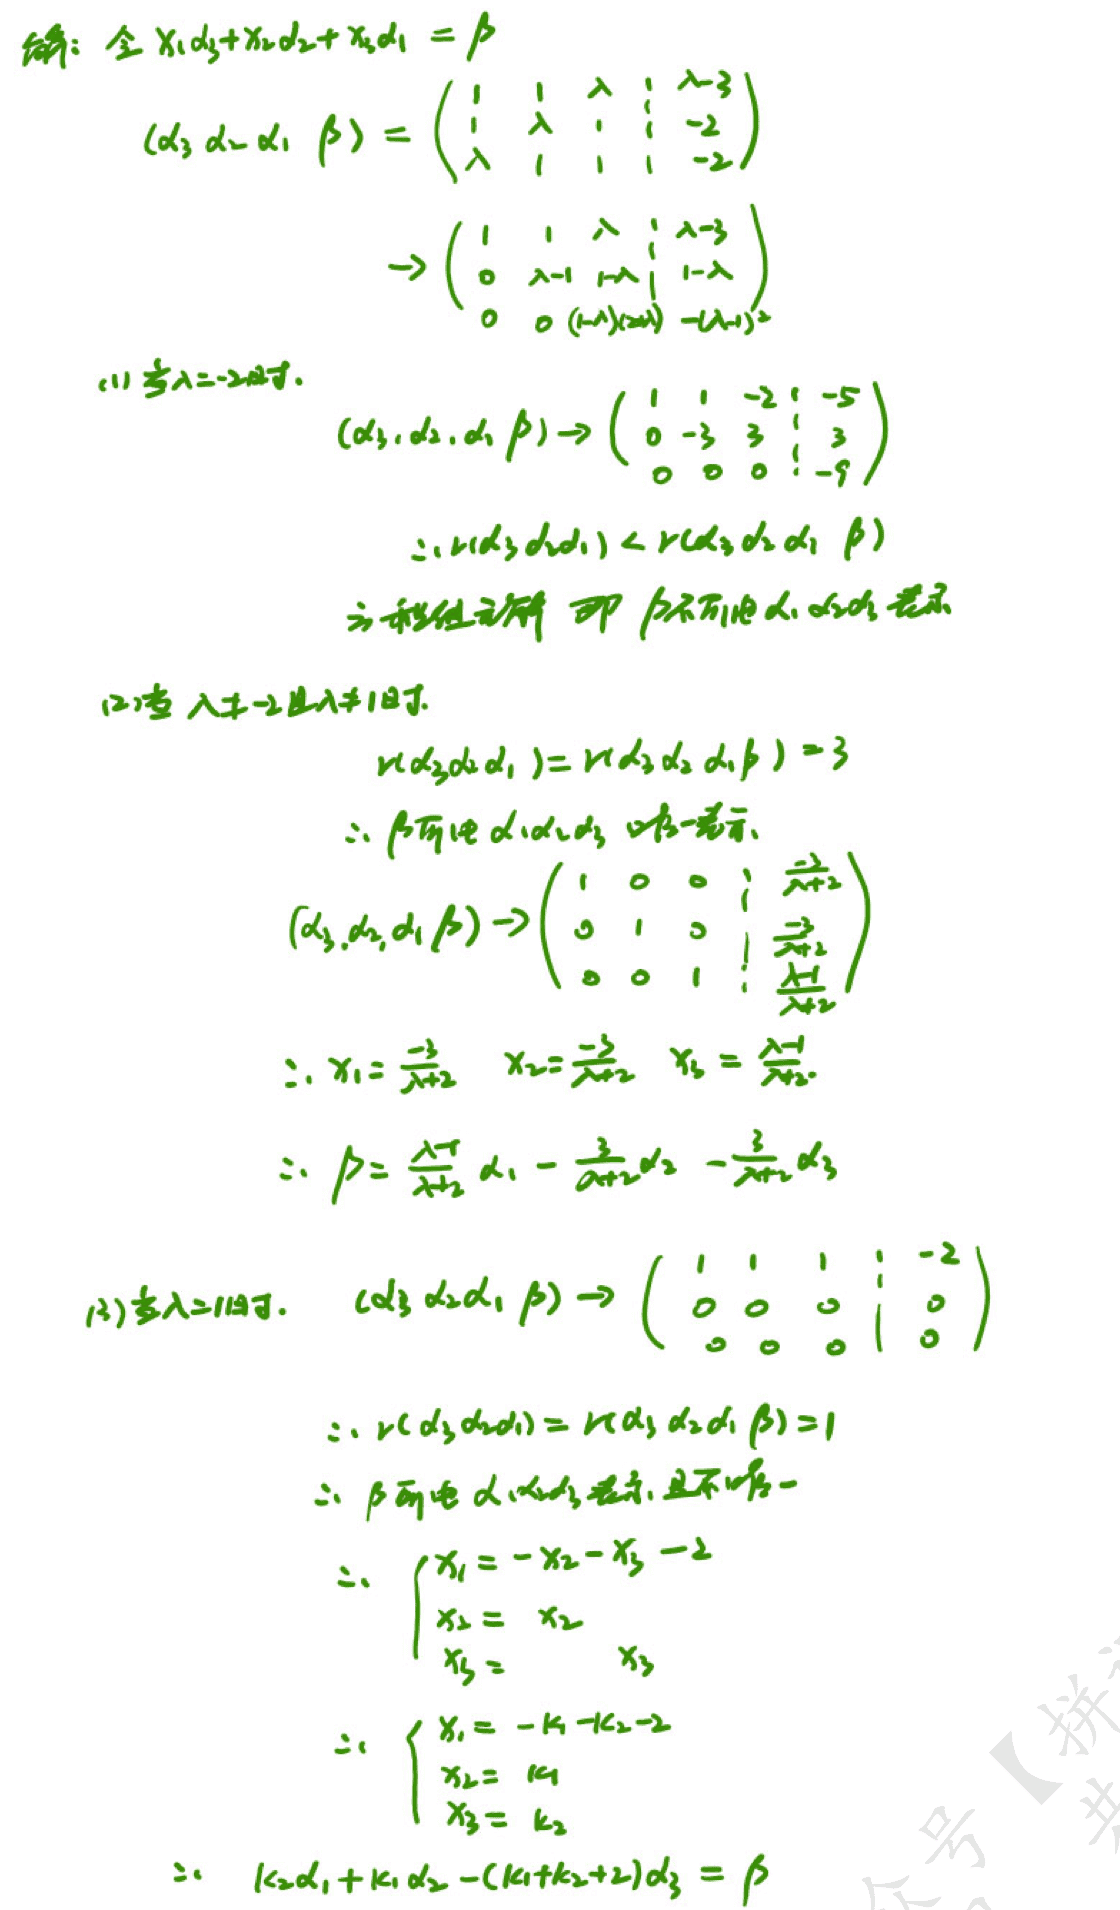 解: 令 x₁α₃+x₂α₂+x₃α₁ = β
(α₃ α₂ α₁ β) = ( 1 1 λ ¦ λ-3
1 λ 1 ¦ -2
λ 1 1 ¦ -2 )
→ ( 1 1 λ ¦ λ-3
0 λ-1 1-λ ¦ 1-λ
0 0 (1-λ)(2+λ) -(λ-1)² )
(1) 当λ=-2时.
(α₃, α₂, α₁ β) → ( 1 1 -2 ¦ -5
0 -3 3 ¦ 3
0 0 0 ¦ -9 )
∴ r(α₃ α₂ α₁) < r(α₃ α₂ α₁ β)
∴ 方程组无解 即 β不可由 α₁ α₂ α₃ 表示
(2) 当 λ≠-2且λ≠1时.
r(α₃ α₂ α₁) = r(α₃ α₂ α₁ β) = 3
∴ β可由 α₁α₂α₃ 唯一表示.
(α₃, α₂, α₁ β) → ( 1 0 0 ¦ -3/(λ+2)
0 1 0 ¦ -3/(λ+2)
0 0 1 ¦ (λ-1)/(λ+2) )
∴ x₁ = -3/(λ+2) x₂ = -3/(λ+2) x₃ = (λ-1)/(λ+2).
∴ β = (λ-1)/(λ+2) α₁ - 3/(λ+2) α₂ - 3/(λ+2) α₃
(3) 当λ=1时. (α₃ α₂ α₁ β) → ( 1 1 1 ¦ -2
0 0 0 ¦ 0
0 0 0 ¦ 0 )
∴ r(α₃ α₂ α₁) = r(α₃ α₂ α₁ β) = 1
∴ β可由 α₁α₂α₃ 表示, 且不唯一
∴ { x₁ = -x₂ - x₃ - 2
x₂ = x₂
x₃ = x₃
∴ { x₁ = -k₁ - k₂ - 2
x₂ = k₁
x₃ = k₂
∴ k₂α₁ + k₁α₂ - (k₁+k₂+2)α₃ = β
众号【拼